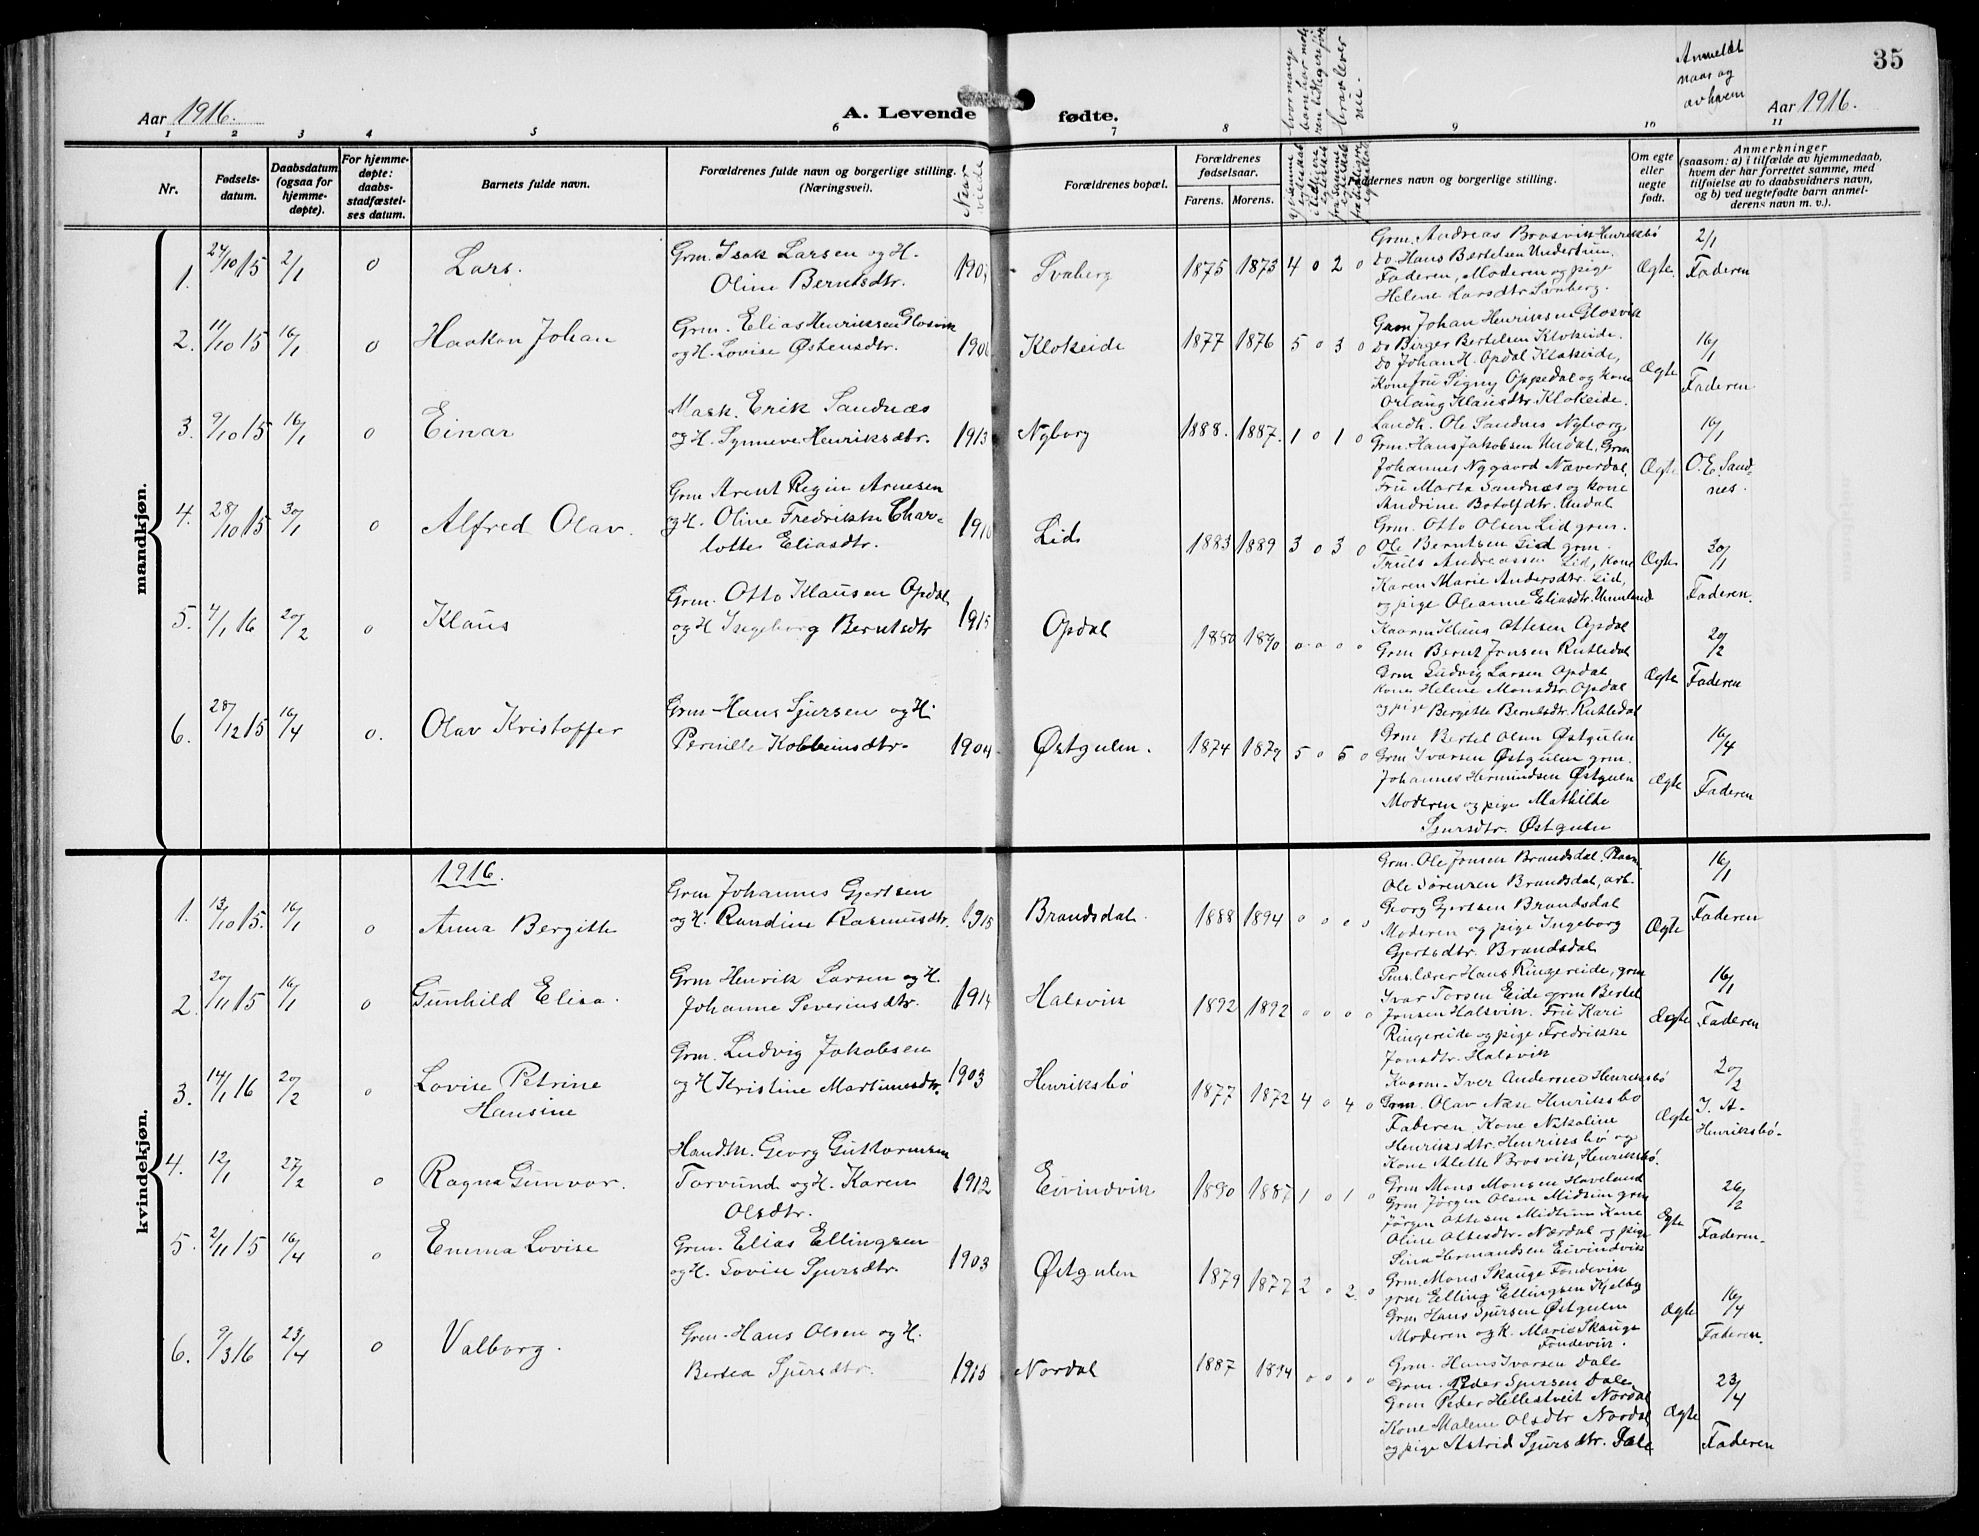 Aar 1916.
A. Levende
fødte.
Anmeldt
naar og
av hvem
35
Aar 1916.
1 2 3 4 5 6 7 8 9 10 11
Nr.
Fødsels-
datum.
Daabsdatum
(ogsaa for
hjemme-
døpte).
For hjemme-
døpte:
daabs-
stadfæstel-
ses datum.
Barnets fulde navn.
Forældrenes fulde navn og borgerlige stilling.
(Næringsvei).
Naar
viede
Forældrenes bopæl.
Forældrenes
fødselsaar.
Farens. Morens.
Faddernes navn og borgerlige stilling.
Om egte
eller
uegte
født.
Anmerkninger
(saasom: a) i tilfælde av hjemmedaab,
hvem der har forrettet samme, med
tilføielse av to daabsvidners navn,
og b) ved uegtefødte barn anmel-
derens navn m. v.).
mandkjøn.
1. 27/10 15 2/1 0 Lars. Grm. Isak Larsen og H.
Oline Berntsdtr.
Svaberg 1875 1873 4 0 2 0
Grm. Andreas Brosvik Henriksbø
do Hans Bertelsen Undertun.
Faderen, Moderen og pige
Helene Larsdtr Svaberg.
Ægte. 2/1
Faderen
2. 11/10 15 16/1 0 Haakon Johan Grm. Elias Henriksen Glosvik
og H. Lovise Østensdtr. 1906
Klokeide 1877 1876 5 0 3 0
Grm Johan Henriksen Glosvik
do Birger Bertelsen Klokeide.
do Johan H. Opdal Klokeide,
Kone fru Signy Oppedal og kone
Orlaug Klausdtr Klokeide.
Ægte 16/1
Faderen
3. 9/10 15 16/1 0 Einar Mask. Erik Sandnæs
og H. Synneve Henriksdtr. 1913
Nyborg 1888. 1887. 1 0 1 0
Landh. Ole Sandnes Nyborg,
Grm. Hans Jakobsen Undal, Grm
Johannes Nygaard Næverdal,
Fru Marta Sandnæs og kone
Andrine Botolfdtr. Undal
Ægte 16/1
O. E. Sand-
nes.
4. 28/10 15 30/1 0 Alfred Olav. Grm Arent Regin Arnesen
og H. Oline Fredrikke Char-
lotte Eliasdtr. 1910
Lid 1883 1889 3 0 3 0
Grm. Otto Olsen Lid grm.
Ole Berntsen Lid grm.
Truls Andreassen Lid, kone
Karen Marie Andersdtr. Lid,
og pige Oleanne Eliasdtr. Unneland
Ægte 30/1
Faderen.
5. 4/1 16 20/2 0 Klaus Grm. Otto Klausen Opdal
og H Ingeborg Berntsdtr 1915
Opdal 1880 1890 0 0 0 0
Kaarm Klaus Ottesen Opdal
Grm Bernt Jonsen Rutledal
Grm Ludvig Larsen Opdal
kone Helene Monsdtr. Opdal
og pige Bergitte Berntsdtr. Rutledal
Ægte 20/2
Faderen
6. 28/12 15 16/4 0. Olav Kristoffer Grm Hans Sjursen og H.
Pernille Kolbeinsdtr. 1904
Østgulen. 1874 1879 5 0 5 0
Grm Bertel Olsen Østgulen
Grm Ivarsen Østgulen grm.
Johannes Hermundsen Østgulen
Moderen og pige Mathilde
Sjursdtr. Østgulen
Ægte 16/4
Faderen
kvindekjøn.
1916.
1. 13/10 15. 16/1 0 Anna Bergitte Grm Johannes Gjertsen
og H. Randine Rasmusdtr. 1915
Brandsdal. 1888 1894 0 0 0 0
Grm. Ole Jonsen Brandsdal,
Ole Sørensen Brandsdal, arb.
Georg Gjertsen Brandsdal
Moderen og pige Ingeborg
Gjertsdtr. Brandsdal
Ægte 16/1
Faderen
2. 20/11 15 16/1 0 Gunhild Elisa. Grm Henrik Larsen og H.
Johanne Severinsdtr. 1914
Halsvik 1892 1892 0 0 0 0
Penslærer Hans Ringereide, grm
Ivar Torsen Eide grm Bertel
Jonsen Halsvik. Fru Kari
Ringereide og pige Fredrikke
Jonsdtr. Halsvik
Ægte 16/1
Faderen
3. 14/1 16 20/2 0 Lovise Petrine
Hansine
Grm. Ludvig Jakobsen
og H Kristine Martinusdtr. 1903
Henriksbø 1877 1872 4 0 4 0
Kaarm. Iver Andersen Henriksbø
Grm. Olav Næse Henriksbø
Faderen. Kone Nikoline
Henriksdtr. Henriksbø og
Kone Alette Brosvik, Henriksbø.
Ægte 20/2
I. A.
Henriksbø.
4. 12/1 27/2 0 Ragna Gunvor. Handm. Georg Guttormsen
Torvund og H. Karen
Olsdtr. 1912
Eivindvik 1890 1887 1 0 1 0
Grm Mons Monsen Haveland
Grm Jørgen Olsen Midtun grm
Jörgen Ottesen Midtun Kone
Oline Ottesdtr. Nordal og pige
Sina Hermandsen Eivindvik
Egte 26/2
Faderen.
5. 2/11 15 16/4 0 Emma Lovise Grm. Elias Ellingsen
og H. Lovise Sjursdtr. 1903
Østgulen 1879 1877 2 0 2. 0
Grm. Mons Skauge Fondevik
grm Elling Ellingsen Kjelby
Grm Hans Sjursen Østgulen
Moderen og K. Marie Skauge
Fondevik.
Ægte 16/4
Faderen.
6. 9/3 16 23/4 0 Valborg. Grm. Hans Olsen og H.
Bertea Sjursdtr. 1915
Nordal 1887 1894 0 0 0 0
Grm. Hans Ivarsen Dale
Grm. Peder Sjursen Dale
Grm Peder Hellestveit Nordal
Kone Malene Olsdtr Nordal
og pige Astrid Sjursdtr. Dale
Ægte 23/4
Faderen